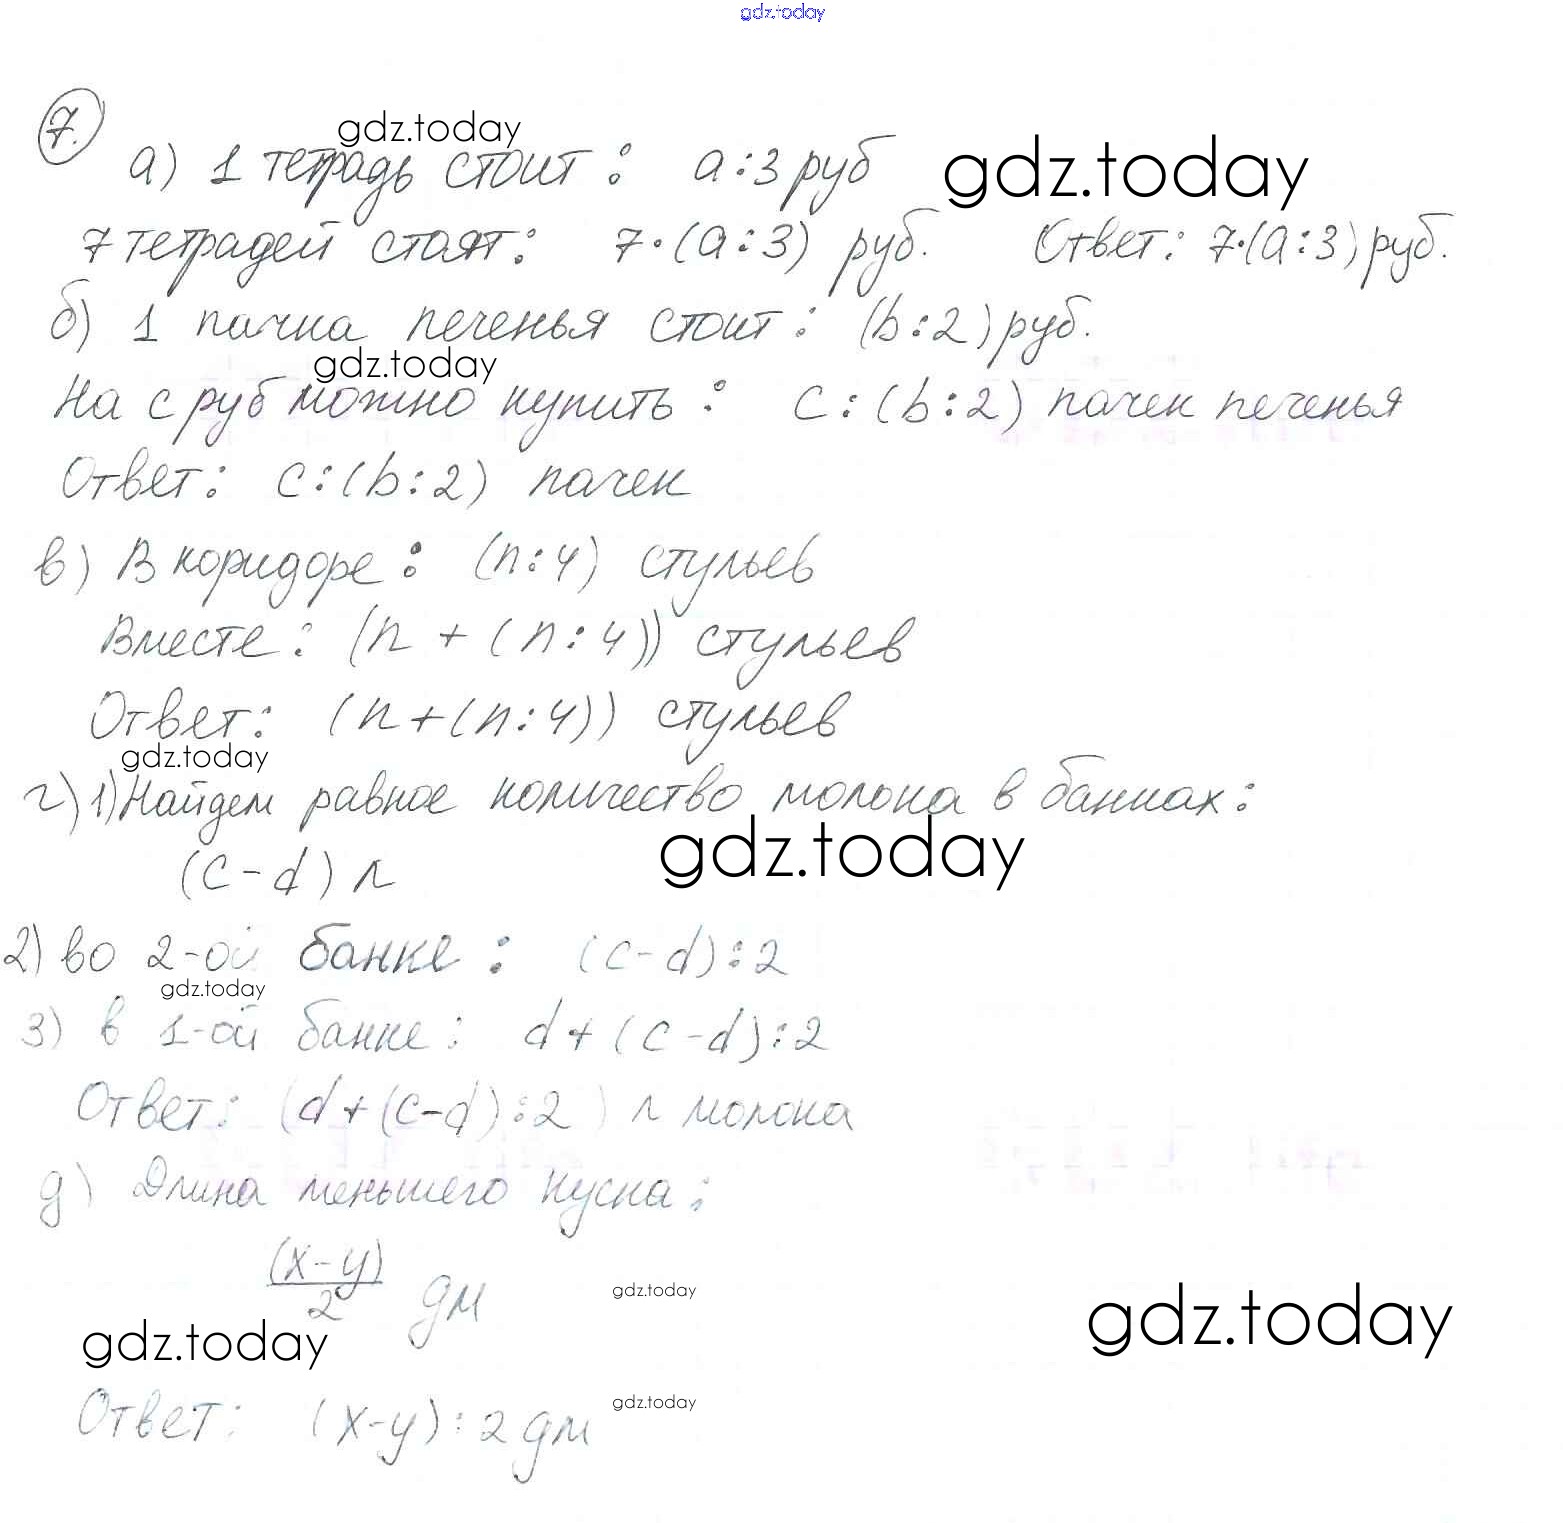 gdz.today
7.
gdz.today
а) 1 тетрадь стоит: a:3 руб
gdz.today
7 тетрадей стоят: 7·(a:3) руб. Ответ: 7·(a:3) руб.
б) 1 пачка печенья стоит: (b:2) руб.
gdz.today
На c руб можно купить: c:(b:2) пачек печенья
Ответ: c:(b:2) пачек
в) В коридоре: (n:4) стульев
Вместе: (n + (n:4)) стульев
Ответ: (n+(n:4)) стульев
gdz.today
г) 1) Найдем равное количество молока в банках:
gdz.today
(c-d) л
2) во 2-ой банке: (c-d):2
gdz.today
3) в 1-ой банке: d+(c-d):2
Ответ: (d+(c-d):2) л молока
д) Длина меньшего куска:
(x-y)
2 дм
gdz.today
gdz.today
gdz.today
Ответ: (x-y):2 дм
gdz.today